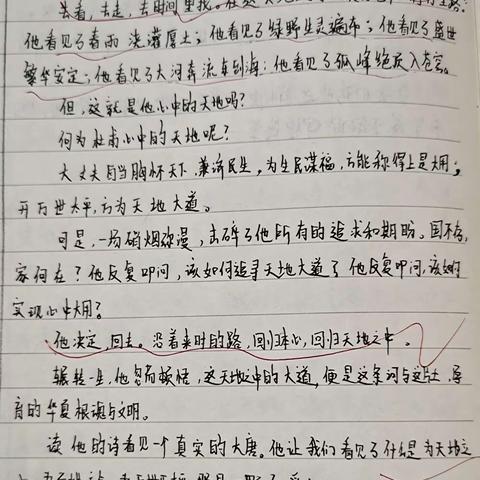 去看，去走，去时间里找。
他看见了春雨浇灌厚土；他看见了绿野生灵遍布；他看见了盛世
繁华安定；他看见了大河奔流东到海；他看见了孤峰绝灰入苍穹。
但，这就是他心中的天地吗？
何为杜甫心中的天地呢？
大丈夫自当胸怀天下，兼济民生，为生民谋福，方能称得上是大用；
开万世太平，方为天地大道。
可是，一场硝烟弥漫，击碎了他所有的追求和期盼。国不存，
家何在？他反复叩问，该如何追寻天地大道？他反复叩问，该如何
实现心中大用？
他决定，回去。沿着来时的路，回归本心，回归天地之中。
辗转一生，他忽而顿悟，这天地之中的大道，便是这条河与这片土，孕
育的华夏根魂与文明。
读他的诗看见一个真实的大唐。他让我们看见了什么是为天地立